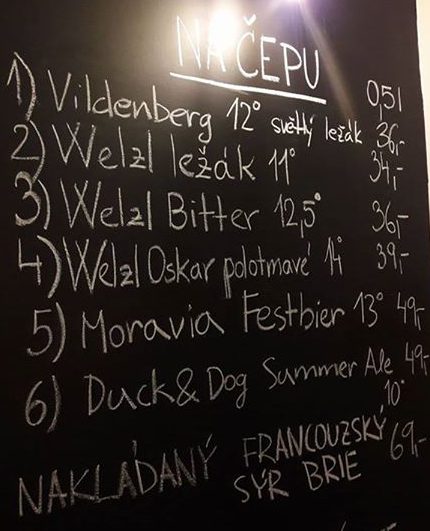 NA ČEPU
0,5l
1) Vildenberg 12° světlý ležák 36,-
2) Welzl ležák 11° 34,-
3) Welzl Bitter 12,5° 36,-
4) Welzl Oskar polotmavé 14° 39,-
5) Moravia Festbier 13° 49,-
6) Duck & Dog Summer Ale 49,-
10°
NAKLÁDANÝ FRANCOUZSKÝ 69,-
SÝR BRIE